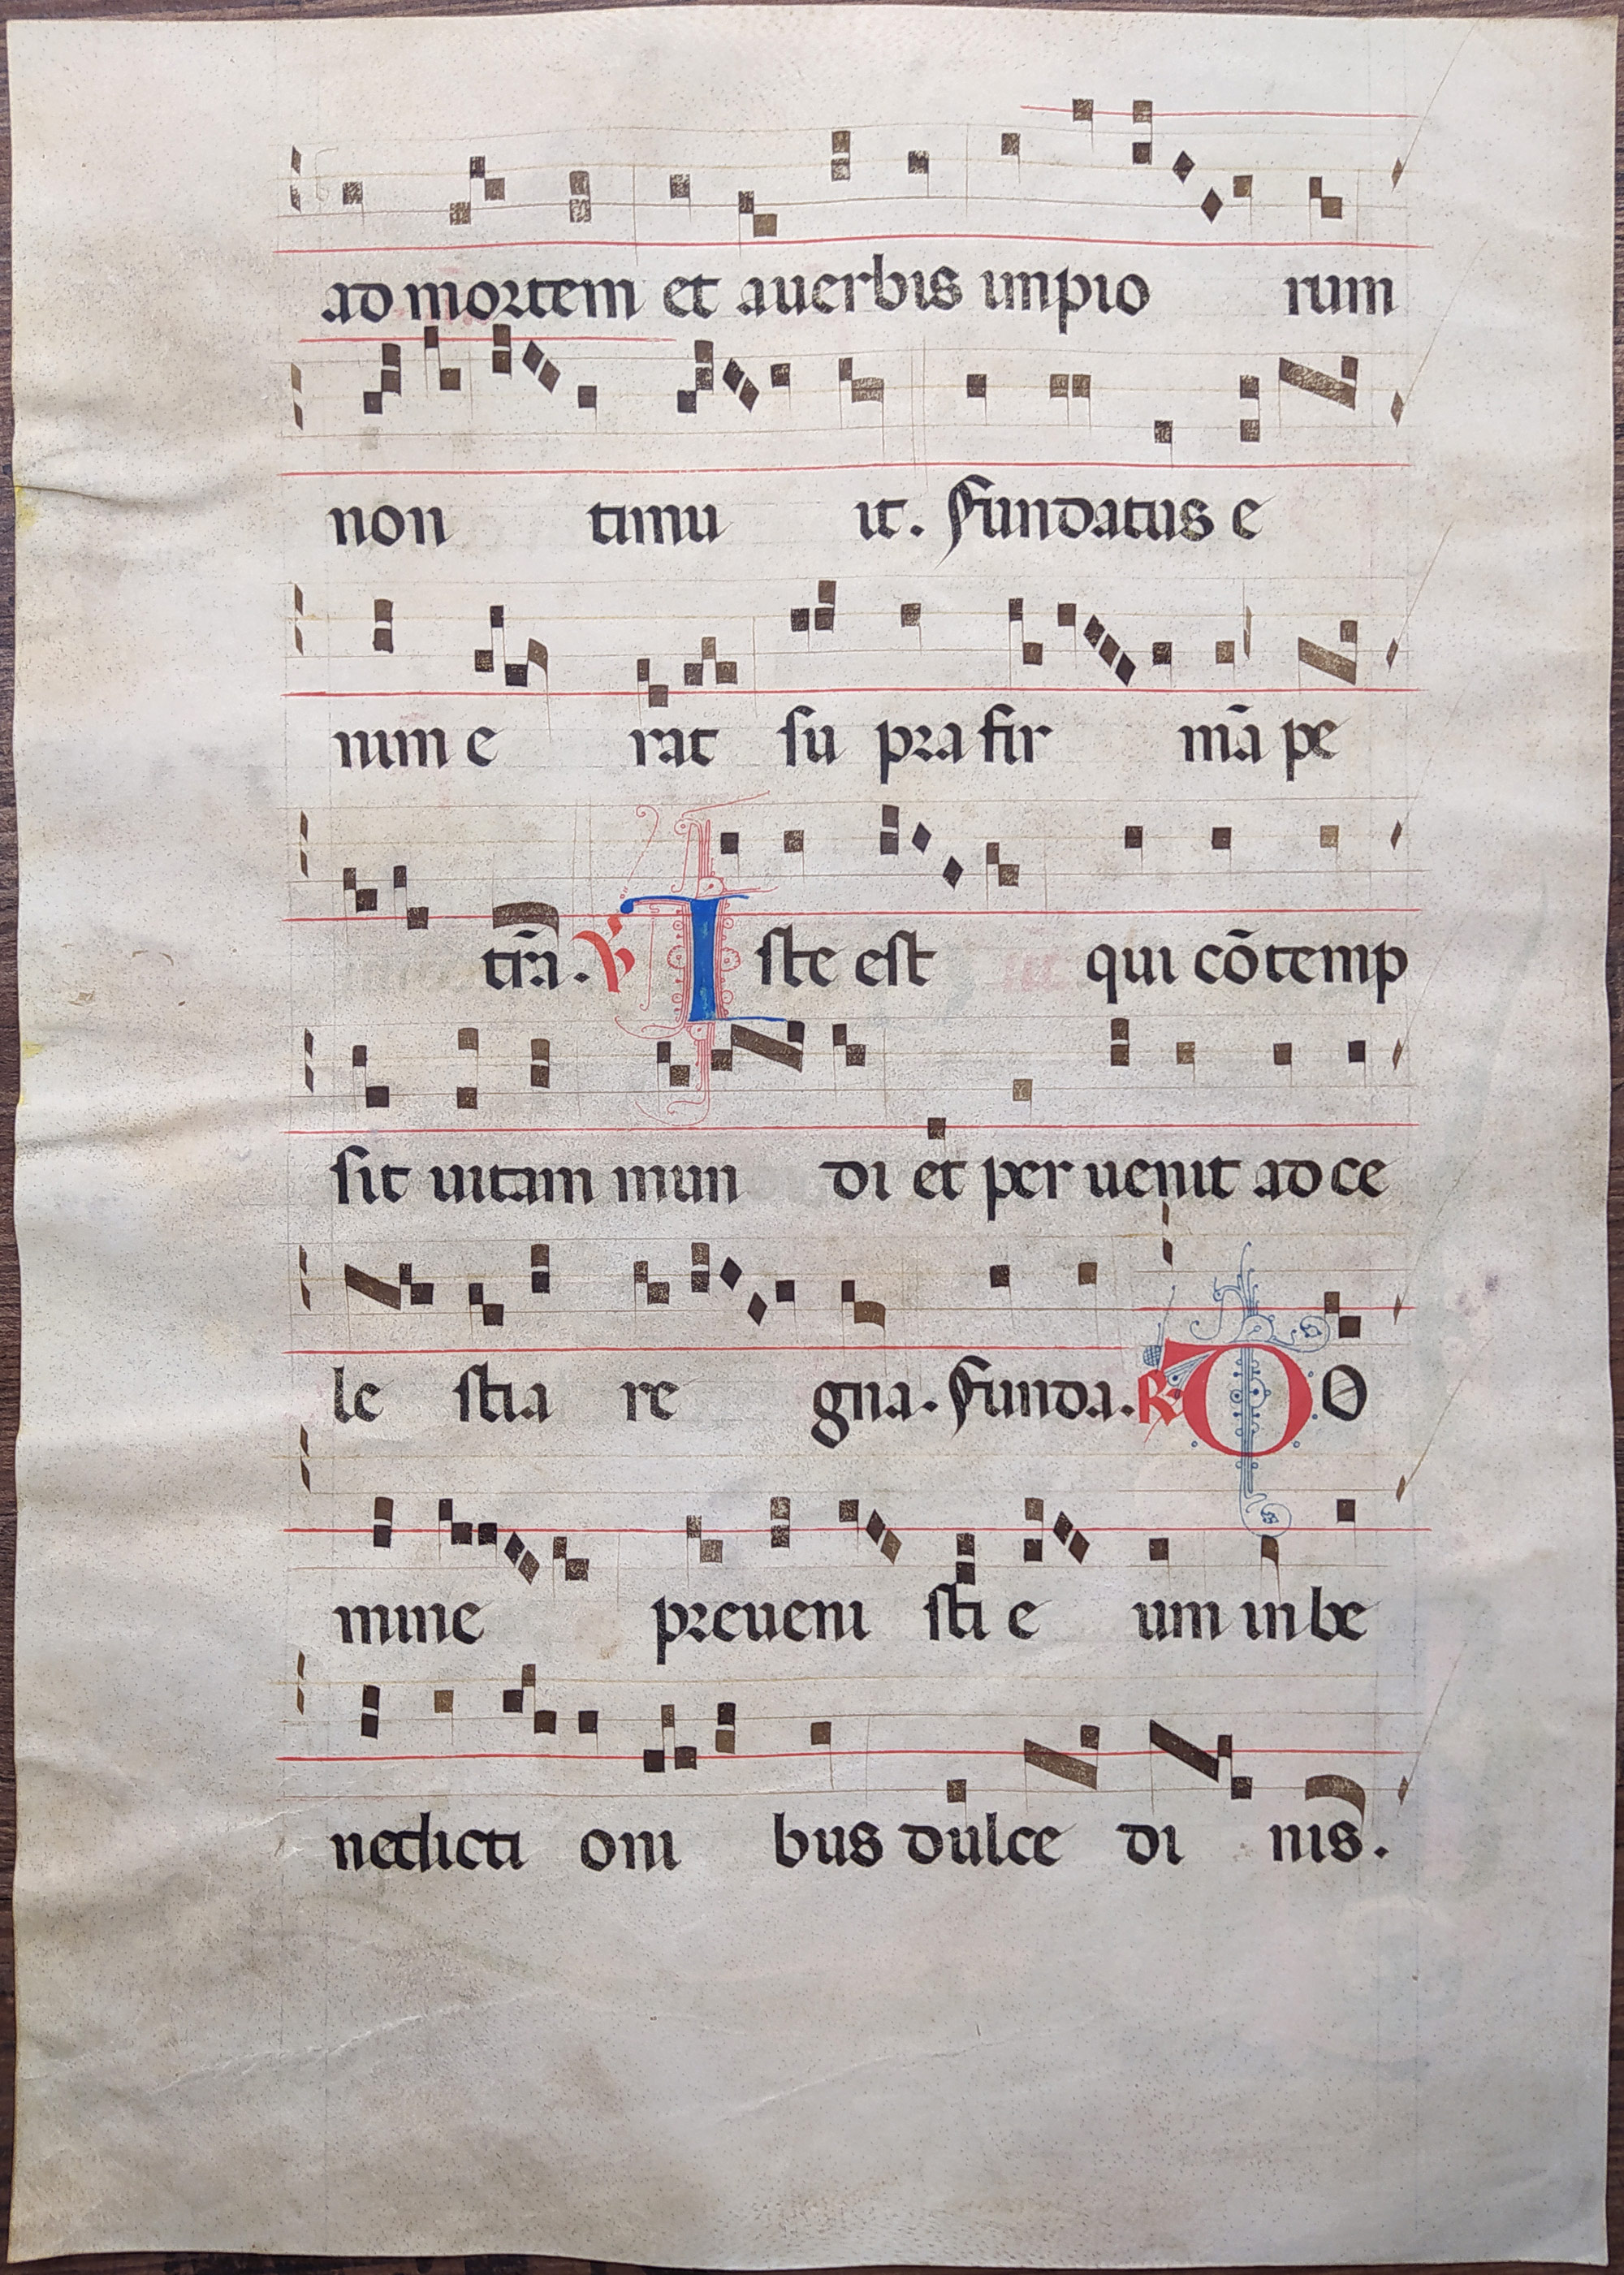 ad mortem et a uerbis impio rum
non timu it. Fundatus e
nim e rat su pra fir mā pe
trā. ℣ Iste est qui cōtemp
sit uitam mun di et per uenit ad ce
le stia re gna. Funda. ℟ DO
mine preueni sti e um in be
nedicti oni bus dulce di nis.